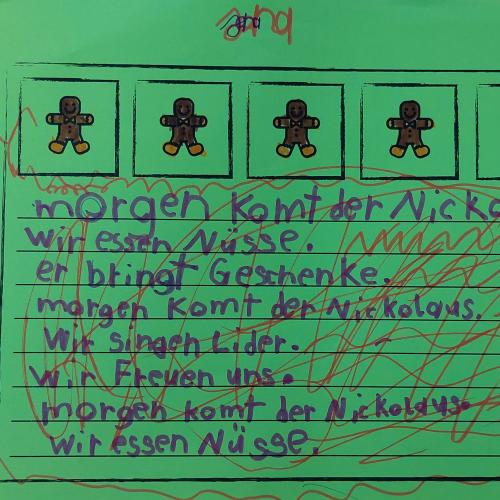 morgen komt der Nicko
wir essen Nüsse.
er bringt Geschenke.
morgen komt der Nickolaus.
Wir singen Lider.
wir Freuen uns.
morgen komt der Nickolaus.
wir essen Nüsse.